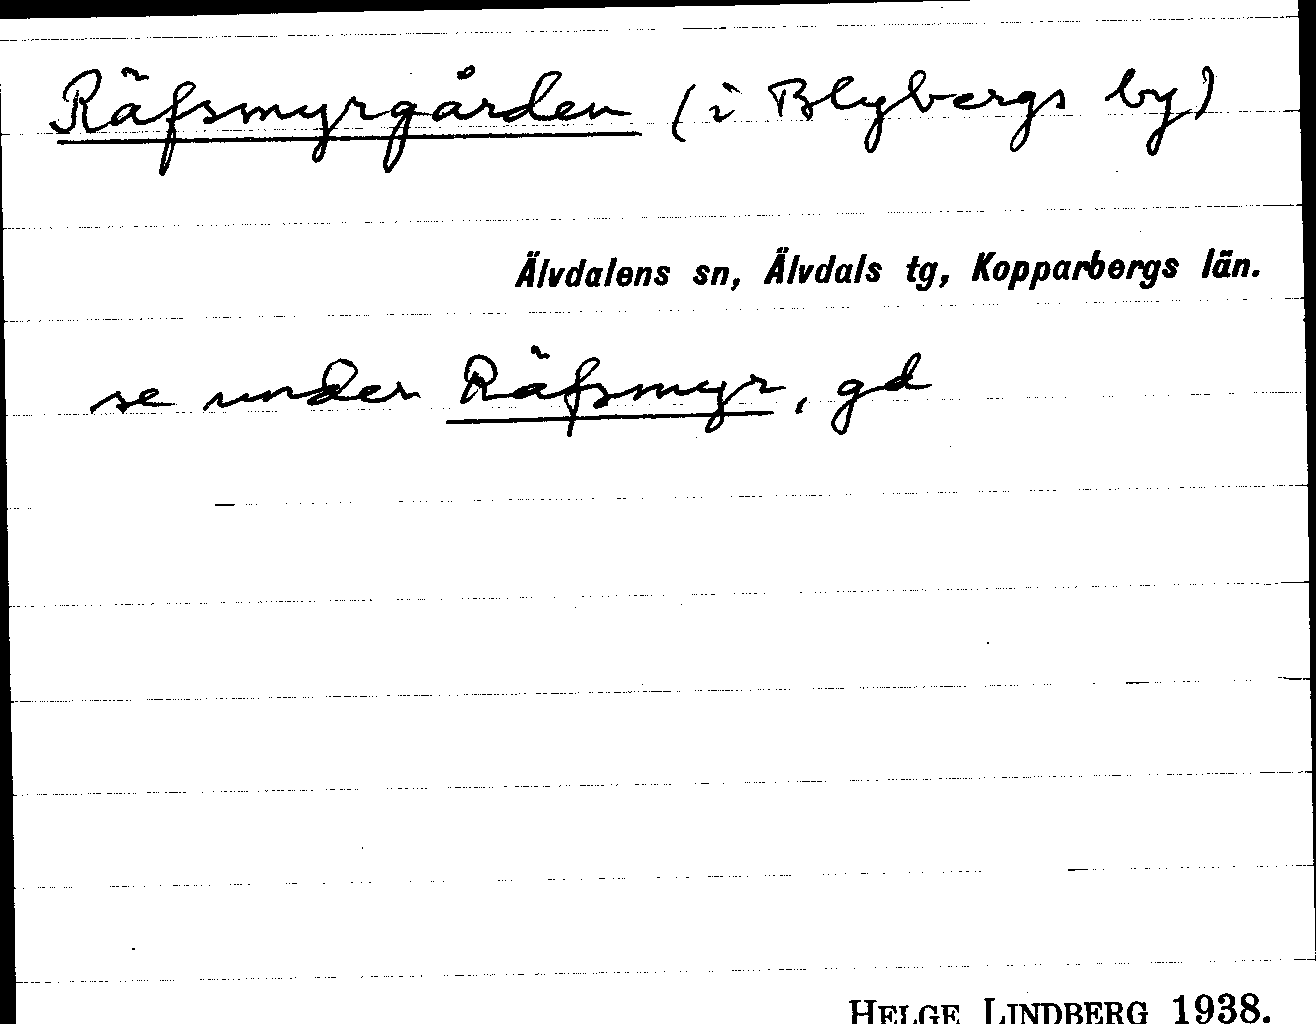 Räfsmyrgården (i Blybergs by)
Älvdalens sn, Älvdals tg, Kopparbergs län.
se under Räfsmyr, gd
HELGE LINDBERG 1938.